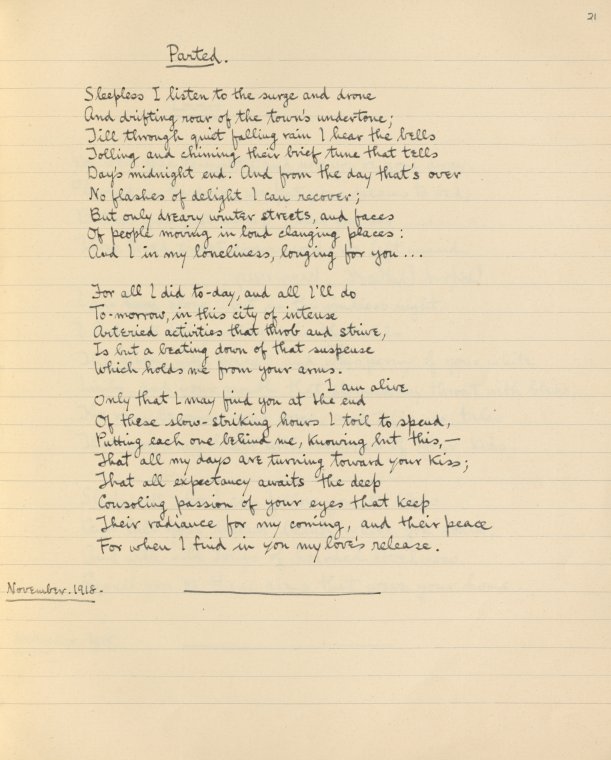 21
Parted.
Sleepless I listen to the surge and drone
And drifting roar of the town's undertone;
Till through quiet falling rain I hear the bells
Tolling and chiming their brief tune that tells
Day's midnight end. And from the day that's over
No flashes of delight I can recover;
But only dreary winter streets, and faces
Of people moving in loud clanging places:
And I in my loneliness, longing for you ...
For all I did to-day, and all I'll do
To-morrow, in this city of intense
Arteried activities that throb and strive,
Is but a beating down of that suspense
Which holds me from your arms.
I am alive
Only that I may find you at the end
Of these slow-striking hours I toil to spend,
Putting each one behind me, knowing but this,—
That all my days are turning toward your kiss;
That all expectancy awaits the deep
Consoling passion of your eyes that keep
Their radiance for my coming, and their peace
For when I find in you my love's release.
November. 1918.